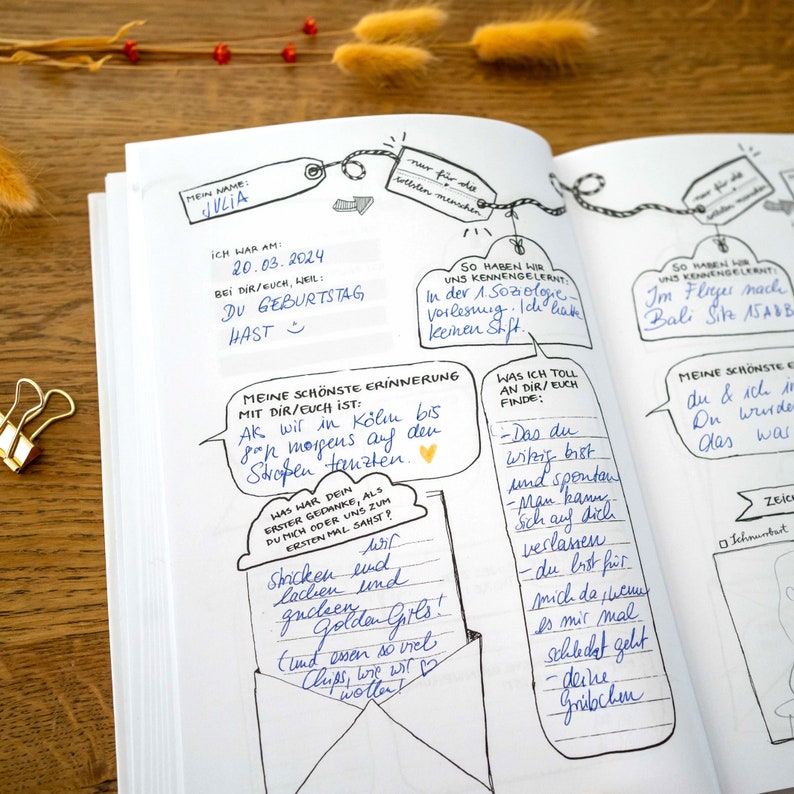 MEIN NAME:
JULIA
nur für die
tollsten menschen
ICH WAR AM:
20.03.2024
BEI DIR/EUCH, WEIL:
DU GEBURTSTAG
HAST
SO HABEN WIR
UNS KENNENGELERNT:
In der 1. Soziologie-
vorlesung. Ich hatte
keinen Stift.
MEINE SCHÖNSTE ERINNERUNG
MIT DIR/EUCH IST:
Als wir in Köln bis
morgens auf den
Straßen tanzten.
WAS WAR DEIN
ERSTER GEDANKE, ALS
DU MICH ODER UNS ZUM
ERSTEN MAL SAHST?
wir
stricken und
lachen und
gucken
Golden Girls!
(und essen so viel
Chips, wie wir
wollen!
WAS ICH TOLL
AN DIR/EUCH
FINDE:
- Das du
witzig bist
und spontan
- Man kann
sich auf dich
verlassen
- du bist für
mich da, wenn
es mir mal
schlecht geht
- deine
Grübchen
nur für die
tollsten menschen
SO HABEN WIR
UNS KENNENGELERNT:
Im Flieger nach
Bali Sitz 15A&B
MEINE SCHÖNSTE
MIT DIR/EUCH
du & ich
Du wurde
das war
ZEICH
Schnurrbart